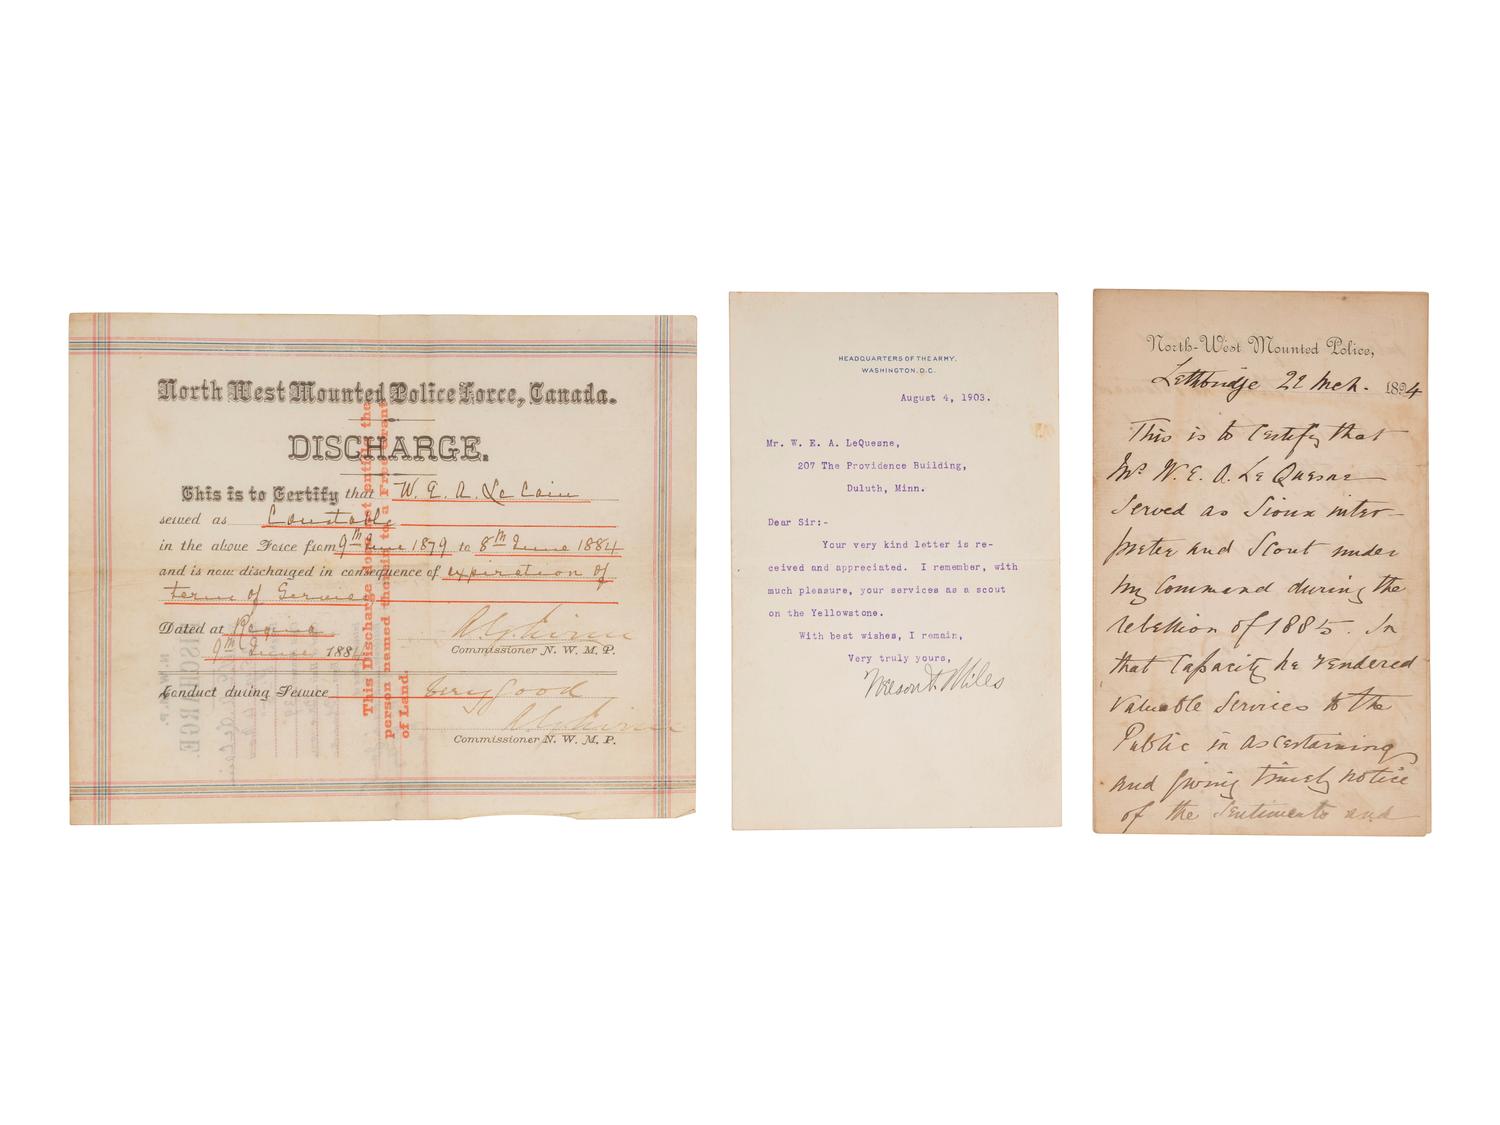 North West Mounted Police Force, Canada.
DISCHARGE.
This is to Certify that W. E. A. Le Cain
served as Constable
in the above Force from 9th June 1879 to 8th June 1884
and is now discharged in consequence of expiration of
term of Service
Dated at Regina
9th June 1884
Commissioner N. W. M. P.
Conduct during Service Very Good
Commissioner N. W. M. P.
This Discharge does not entitle the
person named therein to a Free Grant
of Land.
DISCHARGE.
N. W. M. P.
HEADQUARTERS OF THE ARMY,
WASHINGTON, D.C.
August 4, 1903.
Mr. W. E. A. LeQuesne,
207 The Providence Building,
Duluth, Minn.
Dear Sir:-
Your very kind letter is re-
ceived and appreciated. I remember, with
much pleasure, your services as a scout
on the Yellowstone.
With best wishes, I remain,
Very truly yours,
Nelson A. Miles
North-West Mounted Police,
Lethbridge 22 Mch. 1894
This is to Certify that
Mr W. E. A. Le Quesne
Served as Sioux inter-
preter and Scout under
my Command during the
rebellion of 1885. In
that Capacity he rendered
Valuable Services to the
Public in ascertaining
and giving timely notice
of the Sentiments and